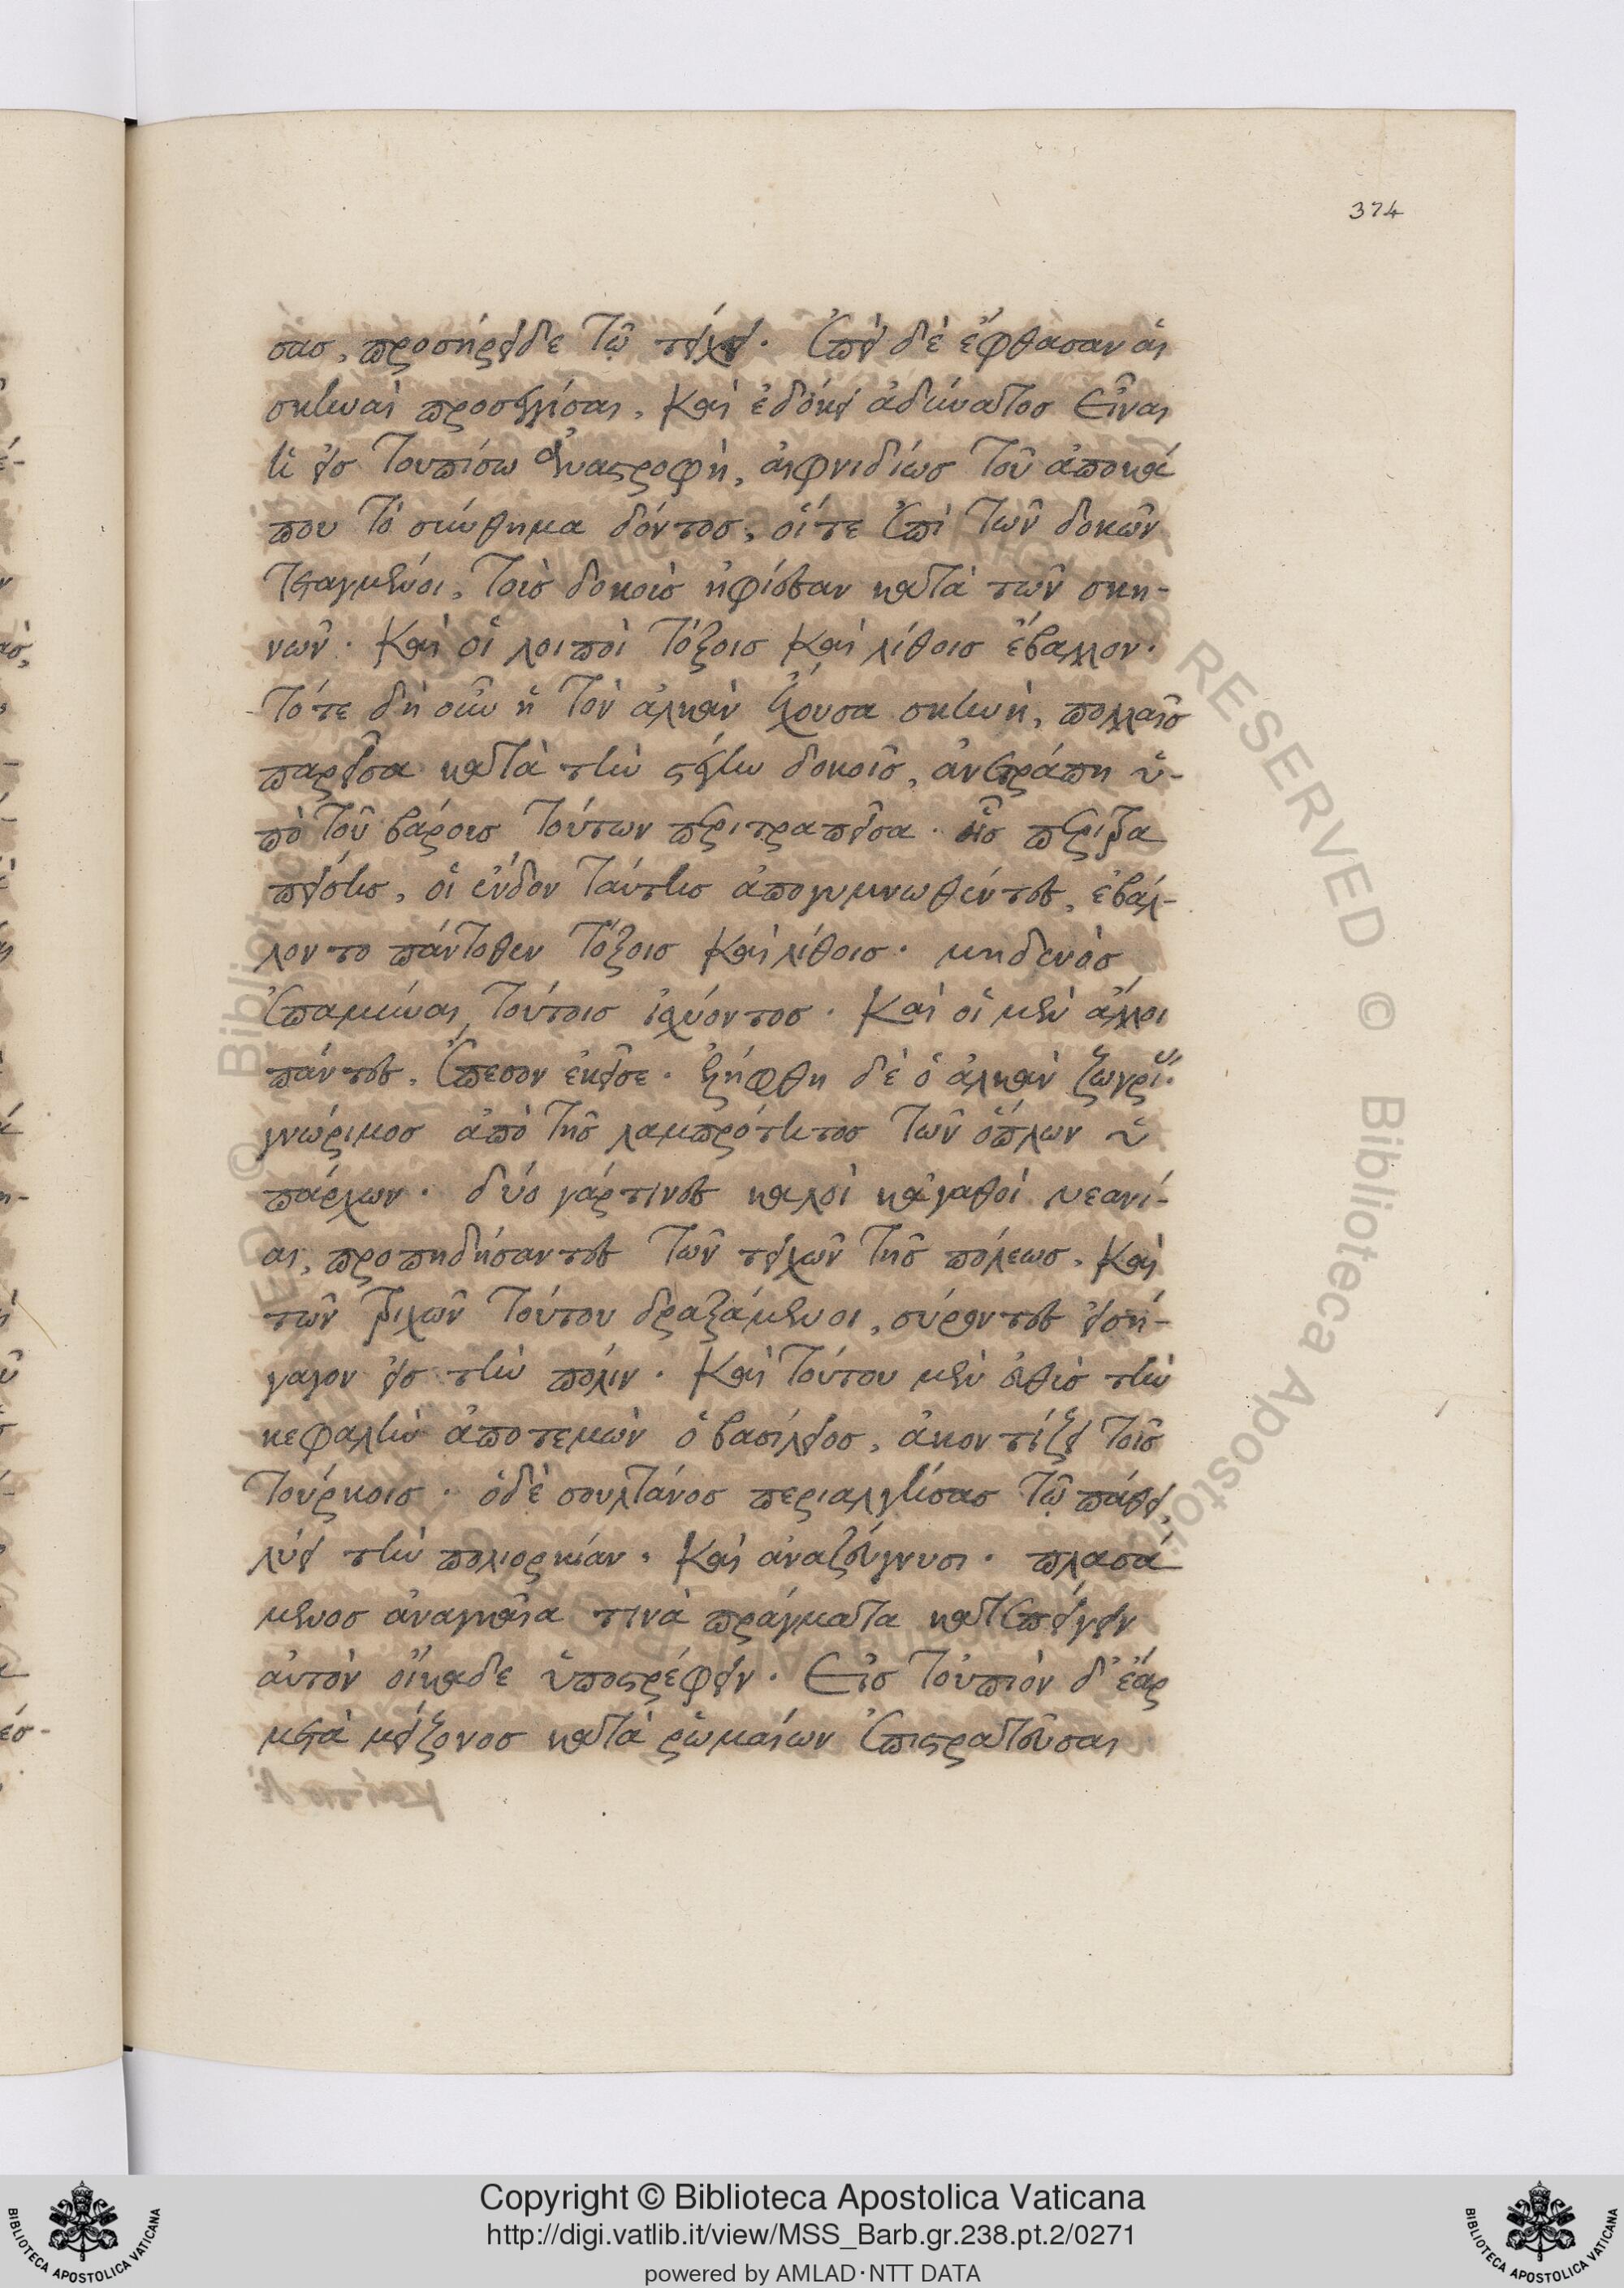 374
σας, προσήρειδε τῷ τείχει. ἐπεὶ δὲ ἔφθασαν αἱ
σκηναὶ προσεγγίσαι, καὶ ἐδόκει ἀδύνατος εἶναι
ἡ εἰς τουπίσω ἀναστροφὴ, αἰφνιδίως τοῦ ἀποκά
που τὸ σύνθημα δόντος, οἵ τε ἐπὶ τῶν δοκῶν
τεταγμένοι, τοὺς δοκοὺς ἠφίεσαν κατὰ τῶν σκη-
νῶν. καὶ οἱ λοιποὶ τόξοις καὶ λίθοις ἔβαλλον.
τότε δὴ οὖν ἡ τὸν ἀλκὰν ἔχουσα σκηνὴ, πολλαῖς
παρεῖσα κατὰ τὴν στέγην δοκοῖς, ἀνετράπη ὑ-
πὸ τοῦ βάρους τούτων περιτραπεῖσα. ἧς περιτρα
πείσης, οἱ ἔνδον ταύτης ἀπογυμνωθέντες, ἐβάλ-
λοντο πάντοθεν τόξοις καὶ λίθοις. μηδενὸς
ἐπαμύναι τούτοις ἰσχύοντος. καὶ οἱ μὲν ἄλλοι
πάντες, ἔπεσον ἐκεῖσε. ἐλήφθη δὲ ὁ ἀλκὰν
γνώριμος ἀπὸ τῆς λαμπρότητος τῶν ὅπλων ὑ
πάρχων. δύο γάρ τινες καλοὶ κἀγαθοὶ νεανί-
αι, προπηδήσαντες τῶν τειχῶν τῆς πόλεως, καὶ
τῶν τριχῶν τούτου δραξάμενοι, σύροντες εἰσή-
γαγον εἰς τὴν πόλιν. καὶ τούτου μὲν εὐθὺς τὴν
κεφαλὴν ἀποτεμὼν ὁ βασίλειος, ἀκοντίζει τοῖς
τούρκοις. ὁ δὲ σουλτάνος περιαλγήσας τῷ πάθει,
λύει τὴν πολιορκίαν. καὶ ἀναζεύγνυσι. πλασά
μενος ἀναγκαῖα τινὰ πράγματα κατεπείγειν
αὐτὸν οἴκαδε ὑποστρέφειν. Εἰς τοὐπιὸν δ' ἔαρ
μετὰ μείζονος κατὰ ῥωμαίων ἐπιστρατεῦσαι
Copyright © Biblioteca Apostolica Vaticana
http://digi.vatlib.it/view/MSS_Barb.gr.238.pt.2/0271
powered by AMLAD·NTT DATA